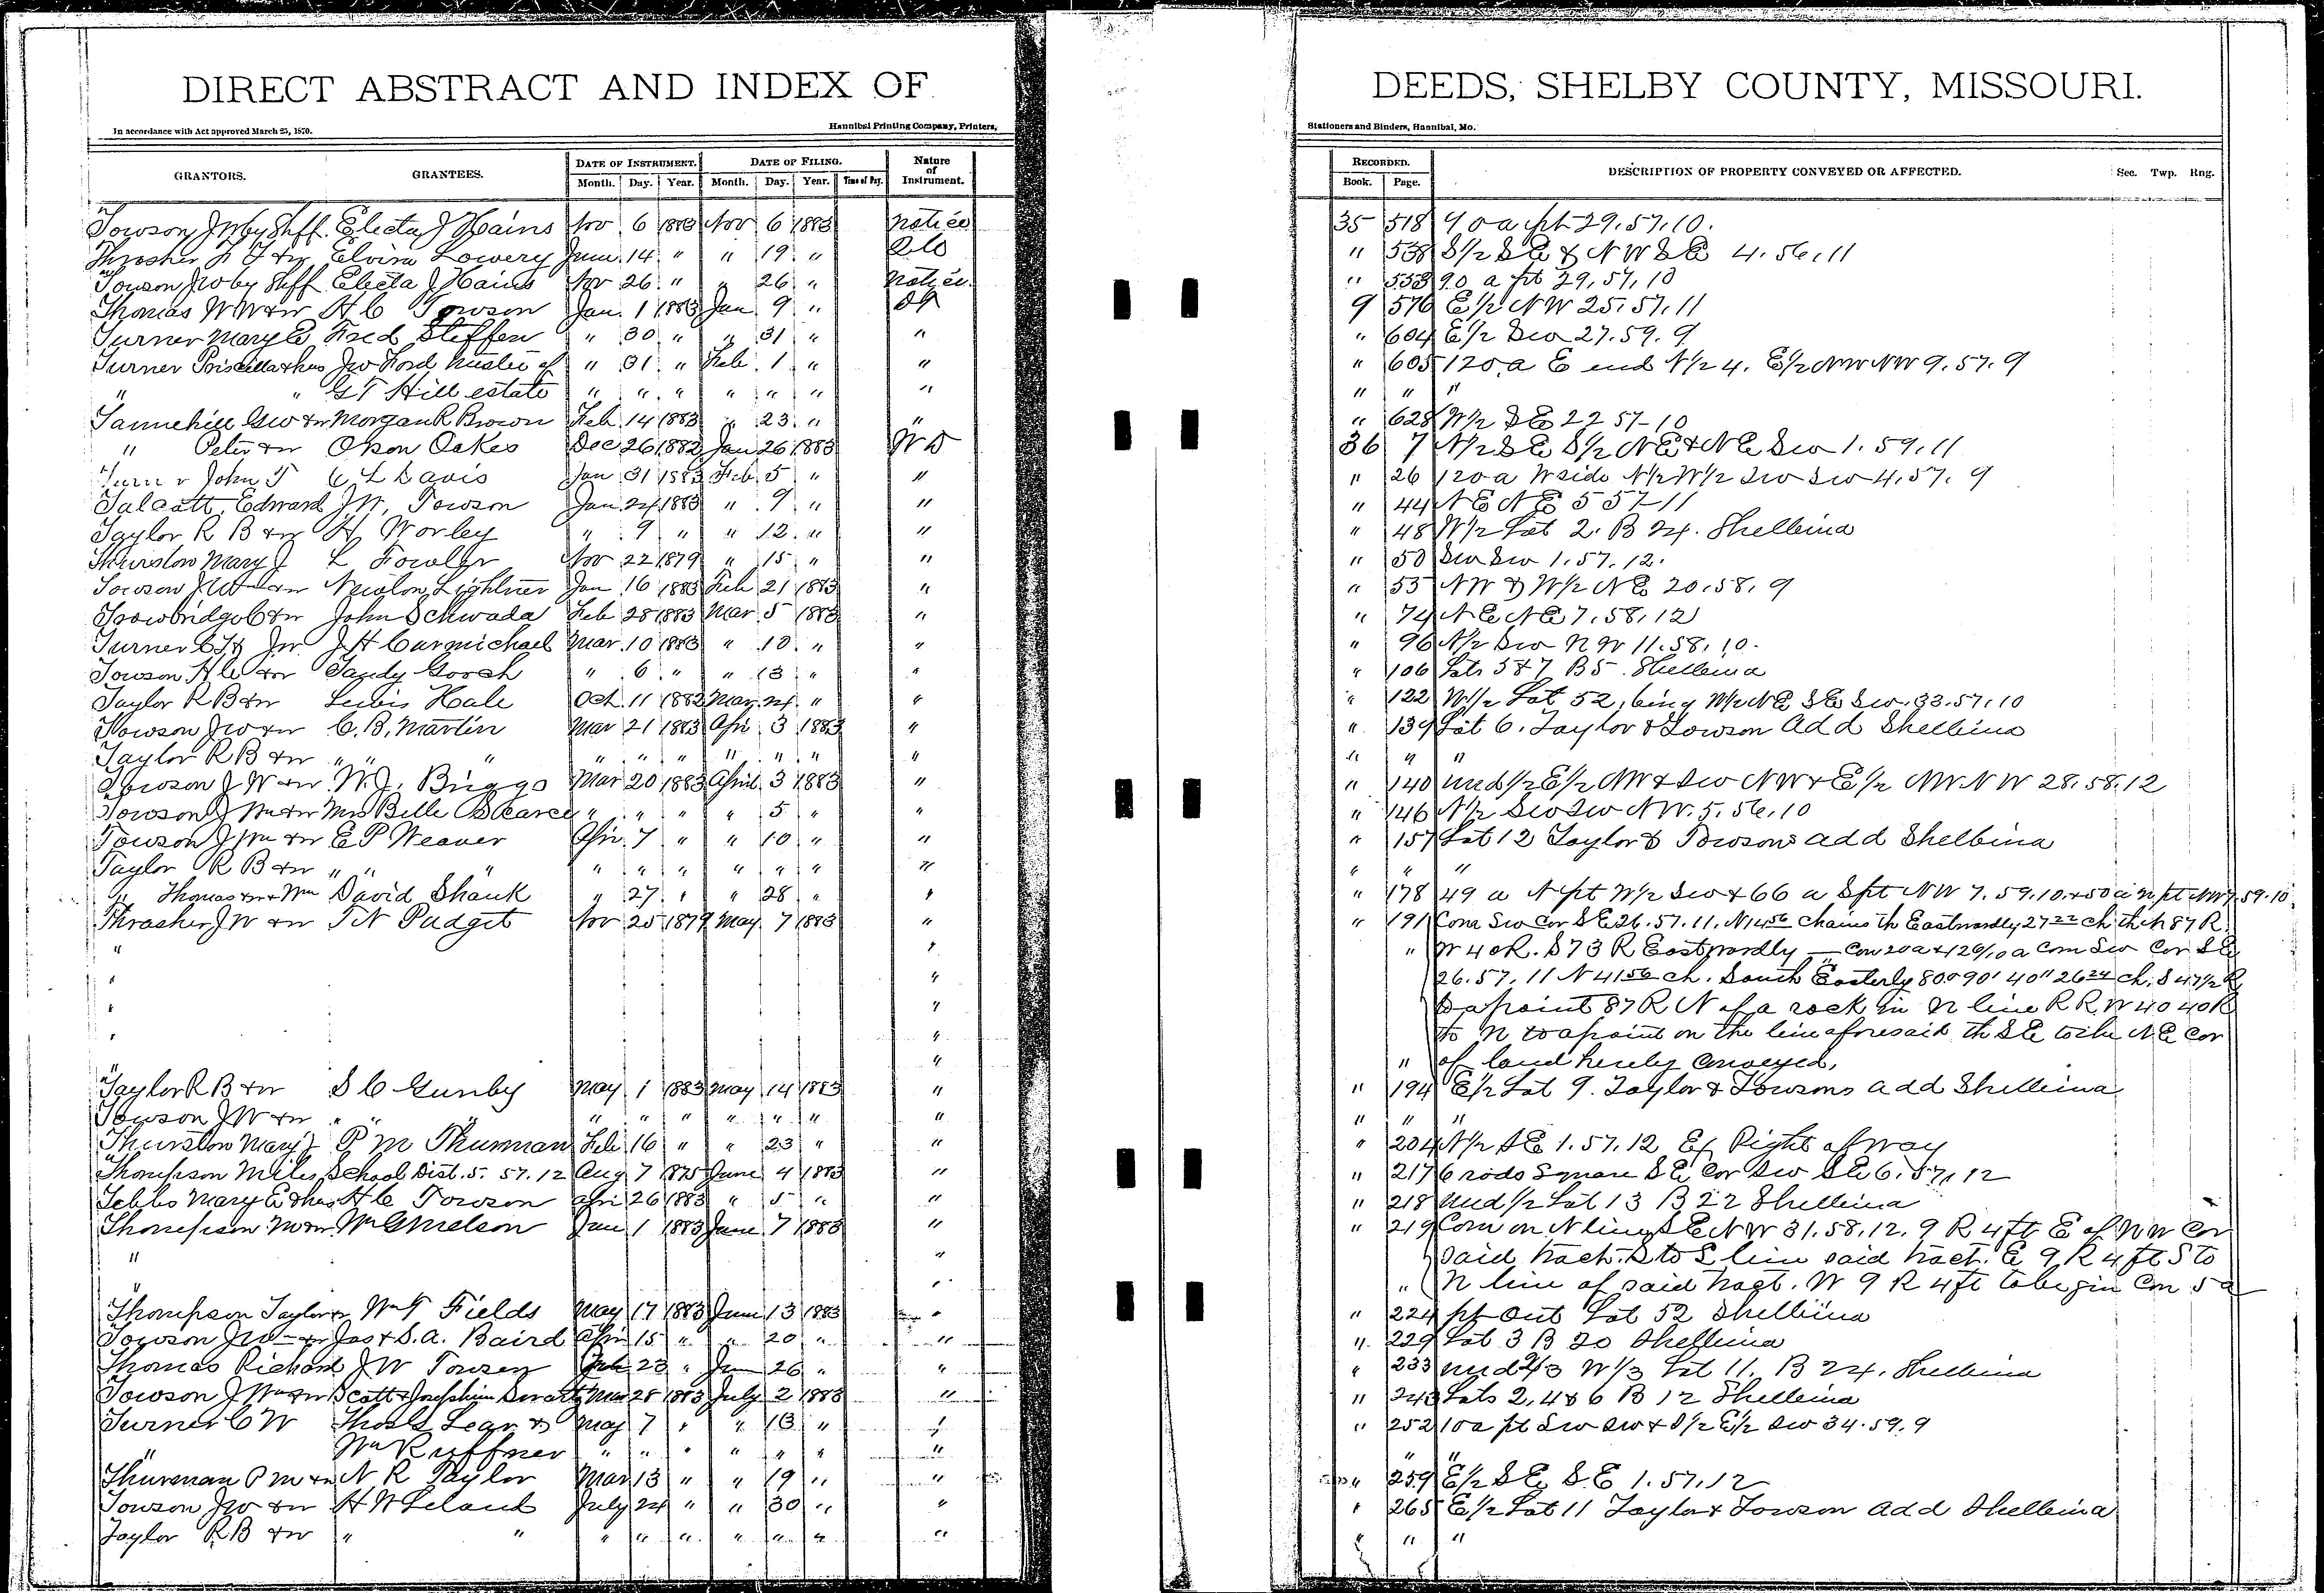 DIRECT ABSTRACT AND INDEX OF DEEDS, SHELBY COUNTY, MISSOURI.
In accordance with Act approved March 25, 1870. Hannibal Printing Company, Printers, Stationers and Binders, Hannibal, Mo.
GRANTORS. GRANTEES. DATE OF INSTRUMENT. Month. Day. Year. DATE OF FILING. Month. Day. Year. Time of Day. Nature of Instrument. RECORDED. Book. Page. DESCRIPTION OF PROPERTY CONVEYED OR AFFECTED. Sec. Twp. Rng.
Towson J W by Shff. Electa J Hains Nov 6 1883 Nov 6 1883 Notice 35 518 90 a pt 29.57.10.
Thrasher & w Elvira Lowery June 14 " " 19 " " 538 S 1/2 S E & N W S E 4.56.11
Towson J W by Shff Electa J Hains Nov 26 " " 26 " Notice " 553 90 a pt 29.57.10
Thomas W W & w H C Towson Jan. 1 1883 Jan 9 " 9 576 E 1/2 N W 25.57.11
Turner Mary E Fred Steffen " 30 " " 31 " " " 604 E 1/2 Sw 27.59.9
Turner Priscilla & hus Jno Ford trustee of " 31 " Feb. 1 " " " 605 120 a E end N 1/2 4. E 1/2 NW NW 9.57.9
" " G T Hill estate " " " " " " " " " "
Tannehill G W & w Morgan R Brown Feb 14 1883 " 23 " " " 628 W 1/2 S E 22 57-10
" Peter & w Orson Oakes Dec 26 1882 Jan 26 1883 W D 36 7 N 1/2 S E S 1/2 N E & N E Sw 1.59.11
Turner John T C L Davis Jan 31 1883 Feb 5 " " " 26 120 a W side N 1/2 W 1/2 Sw Sw 4.57.9
Talcott, Edward J W, Towson Jan 24 1883 " 9 " " " 44 N E N E 5 57-11
Taylor R B & w H Worley " 9 " " 12 " " " 48 W 1/2 Lot 2. B 24. Shelbina
Thurston Mary J L Fowler Nov 22 1879 " 15 " " " 50 Sw Sw 1.57.12.
Towson J W & w Newton Lightner Jan 16 1883 Feb 21 1883 " " 53 NW & W 1/2 N E 20.58.9
Trowbridge C & w John Schwada Feb 28 1883 Mar 5 1883 " " 74 N E N E 7.58.12
Turner C T & w J H Carmichael Mar 10 1883 " 10 " " " 96 N 1/2 Sw N W 11.58.10.
Towson H C & w Sandy Gooch " 6 " " 13 " " " 106 Lots 5 & 7 B 5 Shelbina
Taylor R B & w Lewis Hale Oct. 11 1882 Mar. 24 " " " 122 W 1/2 Lot 52, being W 1/2 N E S E Sw. 33.57.10
Towson J W & w C. B. Martin Mar 21 1883 Apr. 3 1883 " " 139 Lot 6. Taylor & Towson Add Shelbina
Taylor R B & w " " " " " " " " " " " "
Towson J W & w W. J. Briggs Mar 20 1883 April 3 1883 " " 140 und 1/2 E 1/2 NW & Sw NW & E 1/2 NW N W 28.58.12
Towson J W & w Mrs Belle Scearce " " " " 5 " " " 146 N 1/2 Sw Sw N W. 5.56.10
Towson J W & w E P Weaver Apr. 7 " " 10 " " " 157 Lot 12 Taylor & Towsons add Shelbina
Taylor R B & w " " " " " " " " " " " "
" Thomas & w & Wm David Shank " 27 " " 28 " " " 178 49 a N pt W 1/2 Sw & 66 a S pt NW 7.59.10. & 50 a N pt NW 7.59.10.
Thrasher J W & w T N Padget Nov 25 1879 May 7 1883 " " 191 Com Sw Cor S E 26.57.11. N 14 56 Chains th Eastwardly 27 22 ch th N 87 R.
" " " W 40 R. S 73 R Eastwardly — Con 20 a & 126/10 a Com Sw Cor S E
" " 26.57.11 N 41 56 ch. South Easterly 80° 90' 40" 26 24 ch. S 47 1/2 R
" " to a point 87 R N of a rock in N line R R. W 40 40 R
" " to N to a point on the line aforesaid th S E to the N E Cor
" " of land hereby Conveyed,
Taylor R B & w S C Gunby May 1 1883 May 14 1883 " " 194 E 1/2 Lot 9. Taylor & Towsons add Shelbina
Towson J W & w " " " " " " " " " " " "
Thurston Mary J P M Thurman Feb 16 " " 23 " " " 204 N 1/2 S E 1.57.12 Ex Right of way
Thompson Miles School Dist. 5. 57.12 Aug 7 1875 June 4 1883 " " 217 6 rods square S E Cor Sw S E 6.57.12
Tebbs Mary E & hus H C Towson Apr 26 1883 " 5 " " " 218 Und 1/2 Lot 13 B 22 Shelbina
Thompson M & w Wm G Nelson Jan 1 1883 June 7 1883 " " 219 Com on N line S E N W 31.58.12. 9 R 4 ft E of NW Cor
" " said tract. S to S line said tract. E 9 R 4 ft S to
" " " N line of said tract. W 9 R 4 ft to begin Con 5 a
Thompson Taylor & w Wm T Fields May 17 1883 June 13 1883 " " 224 pt Out Lot 52 Shelbina
Towson J W & w Jas & S. A. Baird Apr 15 " " 20 " " " 229 Lot 3 B 20 Shelbina
Thomas Richard J W Towson Feb 23 " Jun 26 " " " 233 und 2/3 W 1/3 Lot 11. B 24. Shelbina
Towson J W & w Scott & Josephine Mar 28 1883 July 2 1883 " " 243 Lots 2, 4 & 6 B 12 Shelbina
Turner C W Thos G Lear & May 7 " " 13 " " " 252 10 a pt Sw Sw & S 1/2 E 1/2 Sw 34.59.9
" Wm Ruffner " " " " " " " " " "
Thurman P M & w N R Taylor Mar 13 " " 19 " " " 259 E 1/2 S E S E 1.57.12
Towson J W & w H W Leland July 24 " " 30 " " " 265 E 1/2 Lot 11 Taylor & Towson add Shelbina
Taylor R B & w " " " " " " " " " " " "